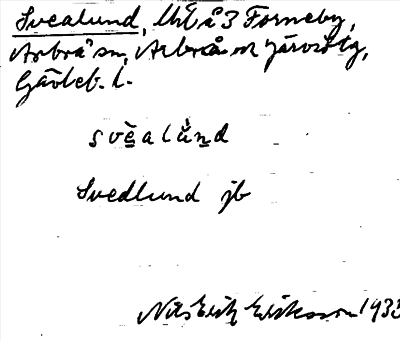 Svealund, lht å 3 Forneby,
Arbrå sn, Arbrå o Järvsö tg,
Gävleb. l.
svèalùnd
Svedlund jb
Nils Erik Eriksson 1933